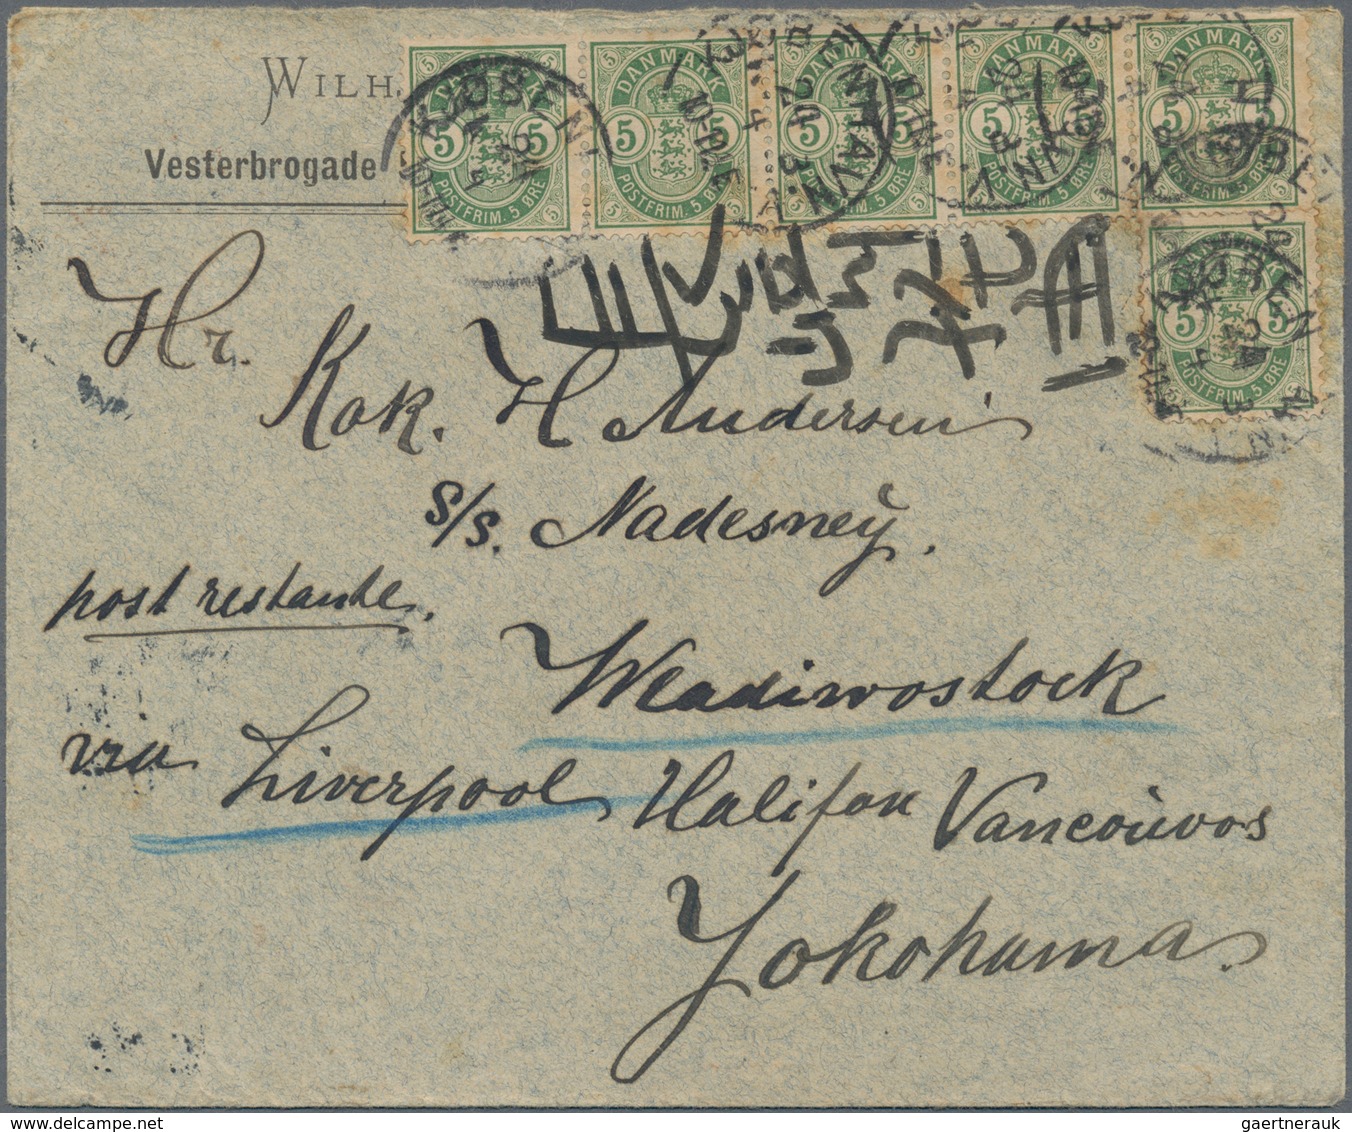 WILH
Vesterbrogade
DANMARK 5 5 POSTFRIM. 5 ØRE
DANMARK 5 5 POSTFRIM. 5 ØRE
DANMARK 5 5 POSTFRIM. 5 ØRE
DANMARK 5 5 POSTFRIM. 5 ØRE
DANMARK 5 5 POSTFRIM. 5 ØRE
DANMARK 5 5 POSTFRIM. 5 ØRE
Hr.
Kok. H Andersen
S/S. Nadesney.
post restante.
Wladiwostock
via Liverpool Halifax Vancouvos
Yokohama
gaertnerauk